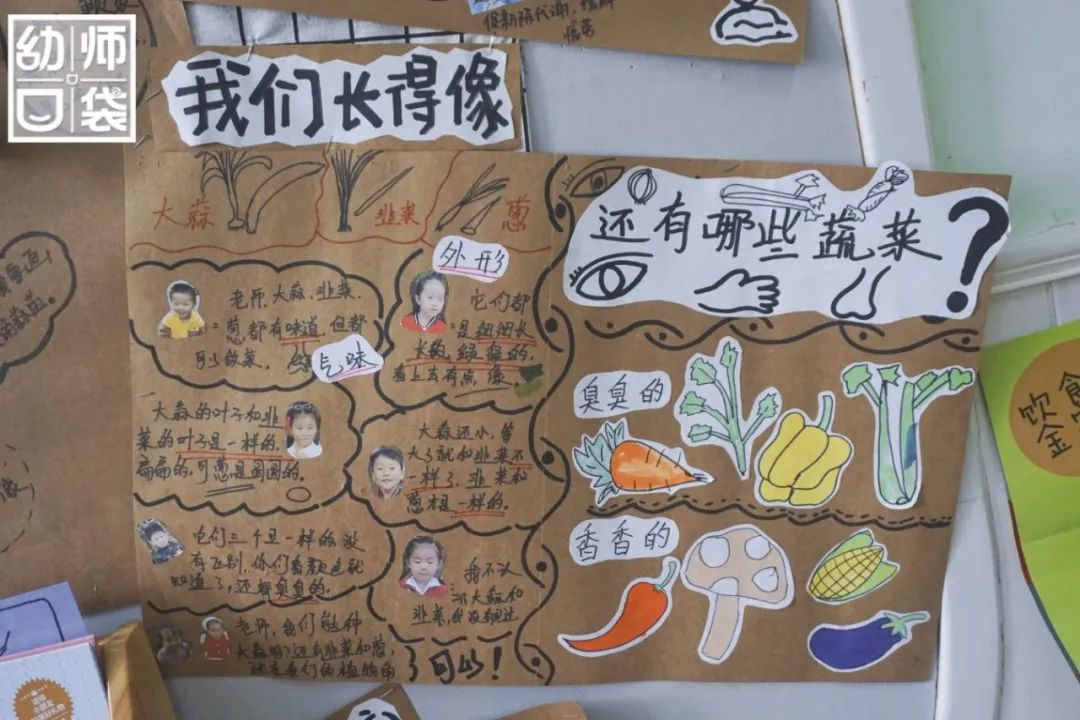 幼师口袋
促新陈代谢,缓解
我们长得像
大蒜
韭菜
葱
外形
老师,大蒜、韭菜、
葱都有味道,但都
可以做菜。
气味
它们都
是细细长
长的,绿绿的,
看上去有点像。
大蒜的叶子和韭
菜的叶子是一样的,
扁扁的,可葱是圆圆的。
大蒜还小,等
大了就和韭菜不
一样了,韭菜和
葱才是一样的。
它们三个是一样的,没
有区别,你们看颜色就
知道了,还都臭臭的。
我不认
识大蒜和
韭菜,我没
老师,我们能种
大蒜吗?还有韭菜和葱,
种在我们的植的角
可以!
还有哪些蔬菜?
臭臭的
香香的
饮食